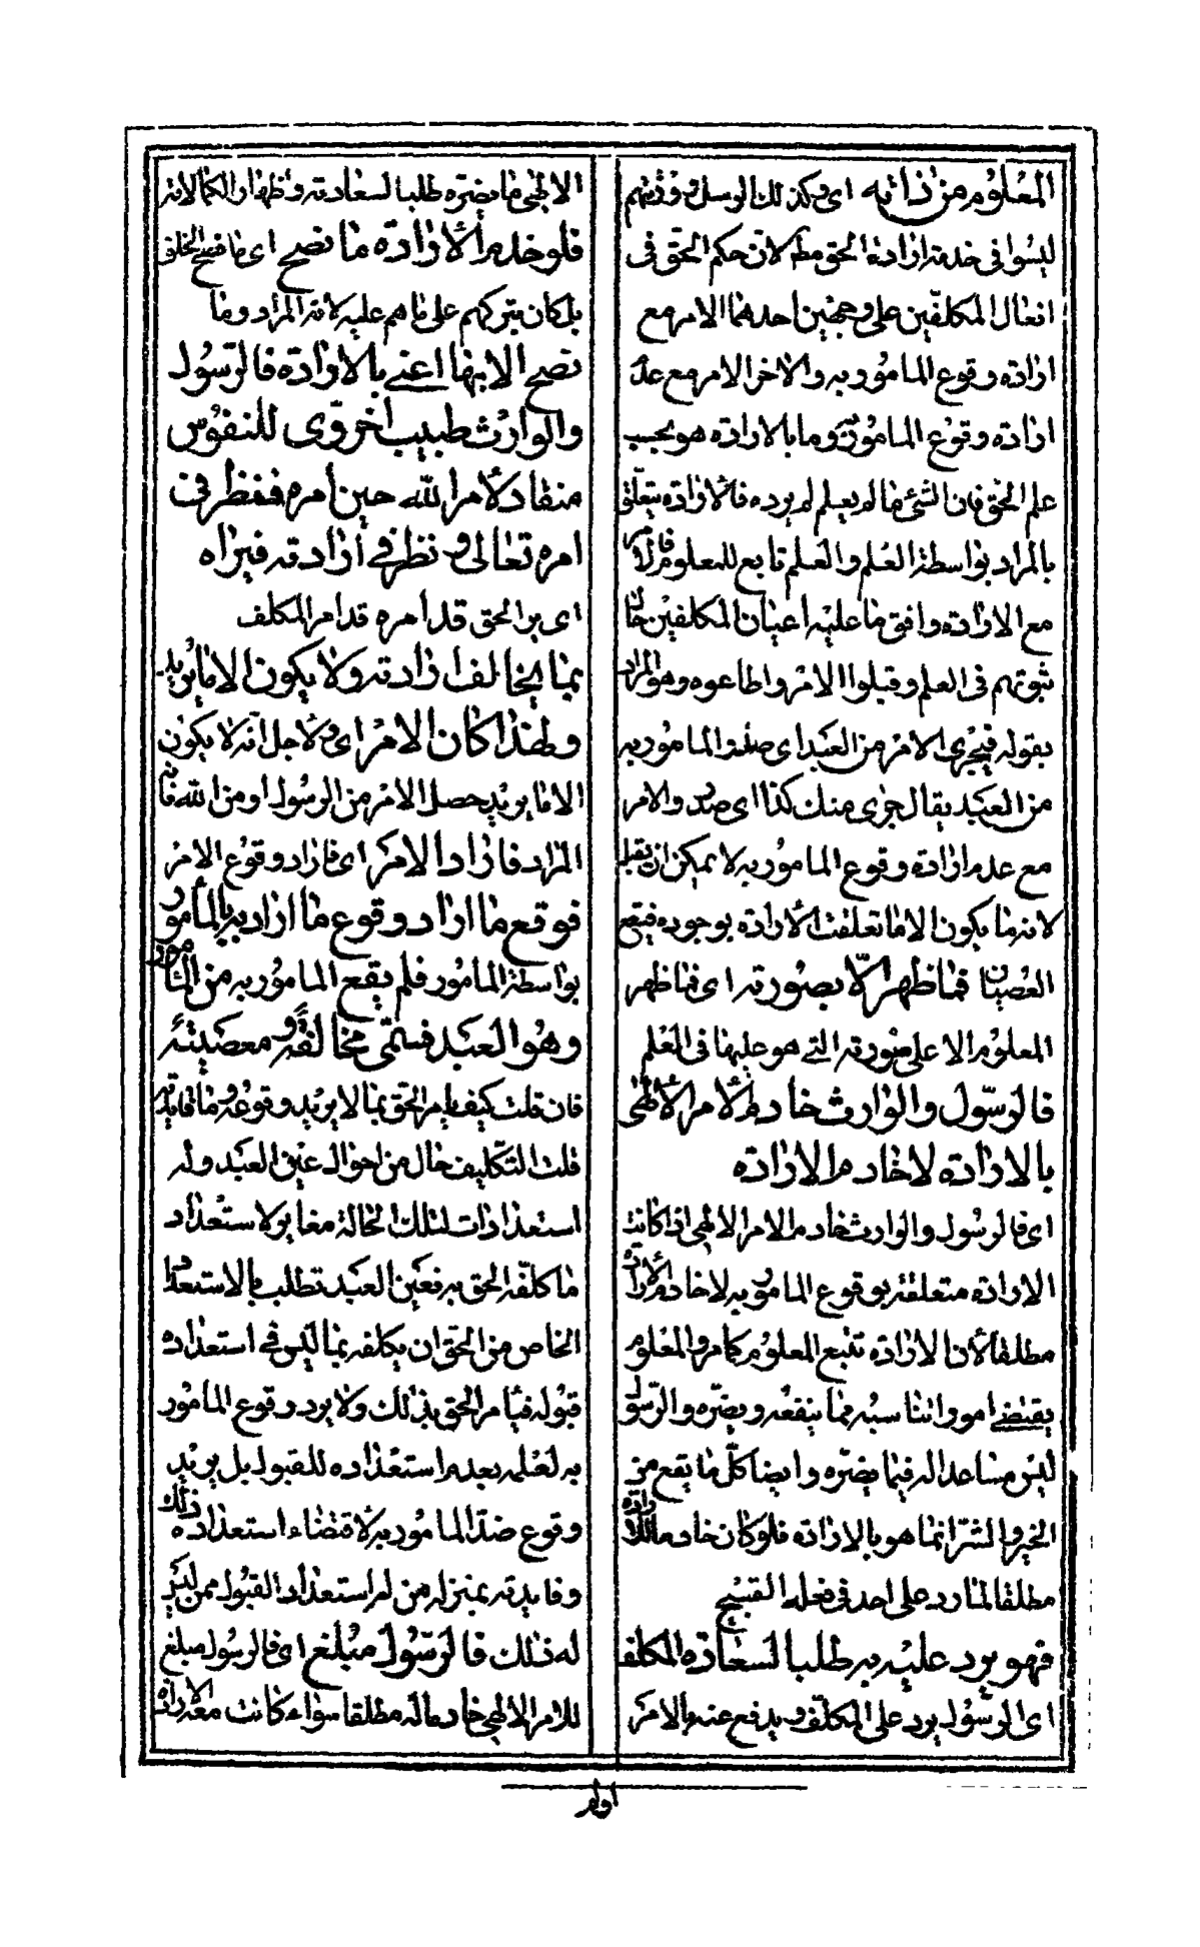 المعلوم من ذاته اى وكذلك الرسل وورثتهم
ليسوا فى خدمة ارادة الحق مطلقا لان حكم الحق فى
افعال المكلفين على وجهين احدهما الامر مع
ارادة وقوع المامور به والاخر الامر مع عدم
ارادة وقوع المامور به وما بالارادة هو بحسب
علم الحق فان الشئ ما لم يعلم لم يرده فالارادة يتعلق
بالمراد بواسطة العلم والعلم تابع للمعلوم فالامر
مع الارادة وافق ما عليه اعيان المكلفين حال
ثبوتهم فى العلم وقبلوا الامر واطاعوه وهو المراد
بقوله فيجرى الامر من العبد اى صدر المامور به
من العبد يقال جرى منك كذا اى صدر والامر
مع عدم ارادة وقوع المامور به لا يمكن ان يقبل
لانه ما يكون الا ما تعلقت الارادة بوجوده فيقع
العصيان فما ظهر الّا بصورته اى فما ظهر
المعلوم الا على صورته التى هو عليها فى العلم
فالرسول والوارث خادم الامر الالهى
بالارادة لا خادم الارادة
اى فالرسول والوارث خادم الامر الالهى اذا كانت
الارادة متعلقة بوقوع المامور به لا خادم الارادة
مطلقا لأن الارادة تتبع المعلوم كما مر والمعلوم
يقتضى امورا تناسبه مما ينفعه ويضرّه والرسول
ليس مساعدا له فيما يضرّه وايضا كلّ ما يقع من
الخير والشرّ انما هو بالارادة فلو كان خادما للارادة
مطلقا لما رد على احد فى فعله القبيح
فهو يرد عليه به طلبا لسعادة المكلف
اى الرسول يرد على المكلف ويدفع عنه بالامر
الالهى ما يضره طلبا لسعادته واظهارا لكمالاته
فلو خدم الأرادة ما نصح اى ما نصح الخلق
بل كان يتركهم على ما هم عليه لانه المراد وما
نصح الا بها اعنى بالارادة فالرسول
والوارث طبيب اخروى للنفوس
منقاد لأمر الله حين امره فنظر فى
امره تعالى ونظر فى ارادته فيراه
اى يرى الحق قد امره قد امر المكلف
بما يخالف ارادته ولا يكون الا ما يريد
ولهذا كان الامر اى ولاجل انه لا يكون
الا ما يريد حصل الامر من الرسول او من الله فانه
المراد فاراد الامر اى فاراد وقوع الامر
فوقع ما اراد وقوع ما اراد به بالمأمور
بواسطة المأمور فلم يقع المامور به من المأمور
وهو العبد فسمّى مخالفة ومعصية
فان قلت كيف يامر الحق بما لا يريد وقوعه وما فايدته
قلت التكليف حال من احوال عين العبد وله
استعداد ذات لتلك الحالة مغاير لاستعداد
ما كلفه الحق به فعين العبد تطلب بالاستعداد
الخاص من الحق ان يكلفه بما ليس فى استعداده
قبوله فيأمر الحق بذلك ولا يرد وقوع المامور
به لعلمه بعدم استعداده للقبول بل يريد
وقوع ضدّ المامور به لاقتضاء استعداده ذلك
وفايدته تمييز له من له استعداد القبول ممن ليس
له ذلك فالرسول مبلغ اى فالرسول مبلغ
للامر الالهى خادم له مطلقا سواء كانت معه الارادة
اولم